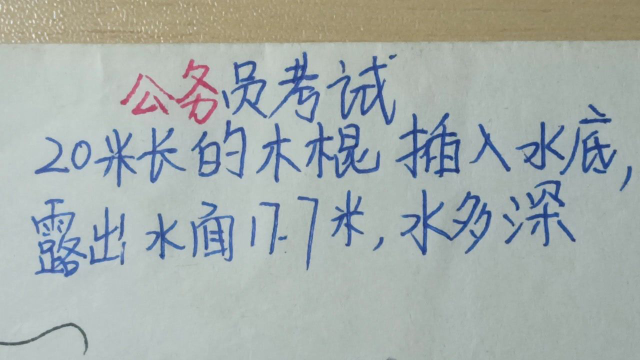 公务员考试
20米长的木棍插入水底,
露出水面17.7米,水多深